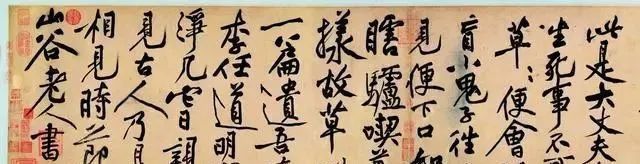 此是大丈夫
生死事不
草〻便會
盲小鬼子往
見便下口如
瞎驢喫
樣故草
一篇遺吾
李任道明
淨几它日親
見古人乃
相見時節
山谷老人書